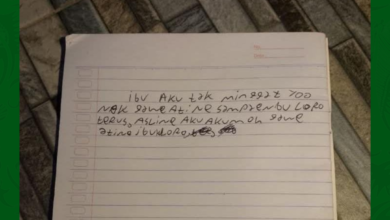 ibu aku tak minggat yoo
nek gawe atine sampean bu Loro
terus, asline aku akumek gawe
atine ibu loro,